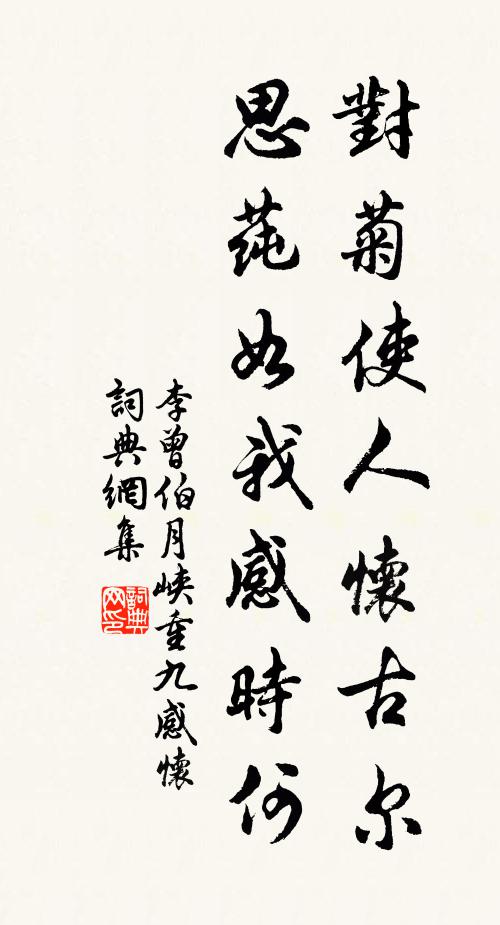 對菊使人懷古尔
思蒓如我感時何
李曾伯月峽重九感懷
詞典網集
詞典网印